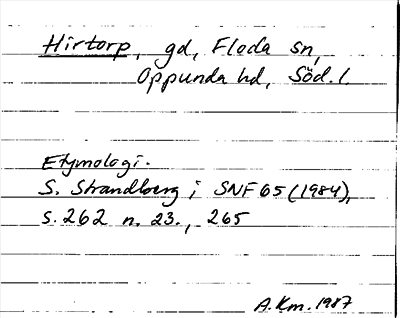 Hirtorp, gd, Floda sn,
Oppunda hd, Söd. l.
Etymologi.
S. Strandberg i SNF 65 (1984),
s. 262 n. 23., 265
A. Km. 1987